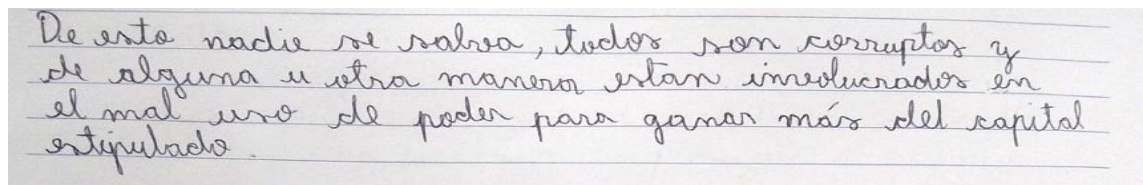 De esto nadie se salva, todos son corruptos y
de alguna u otra manera estan involucrados en
el mal uso de poder para ganar más del capital
estipulado.